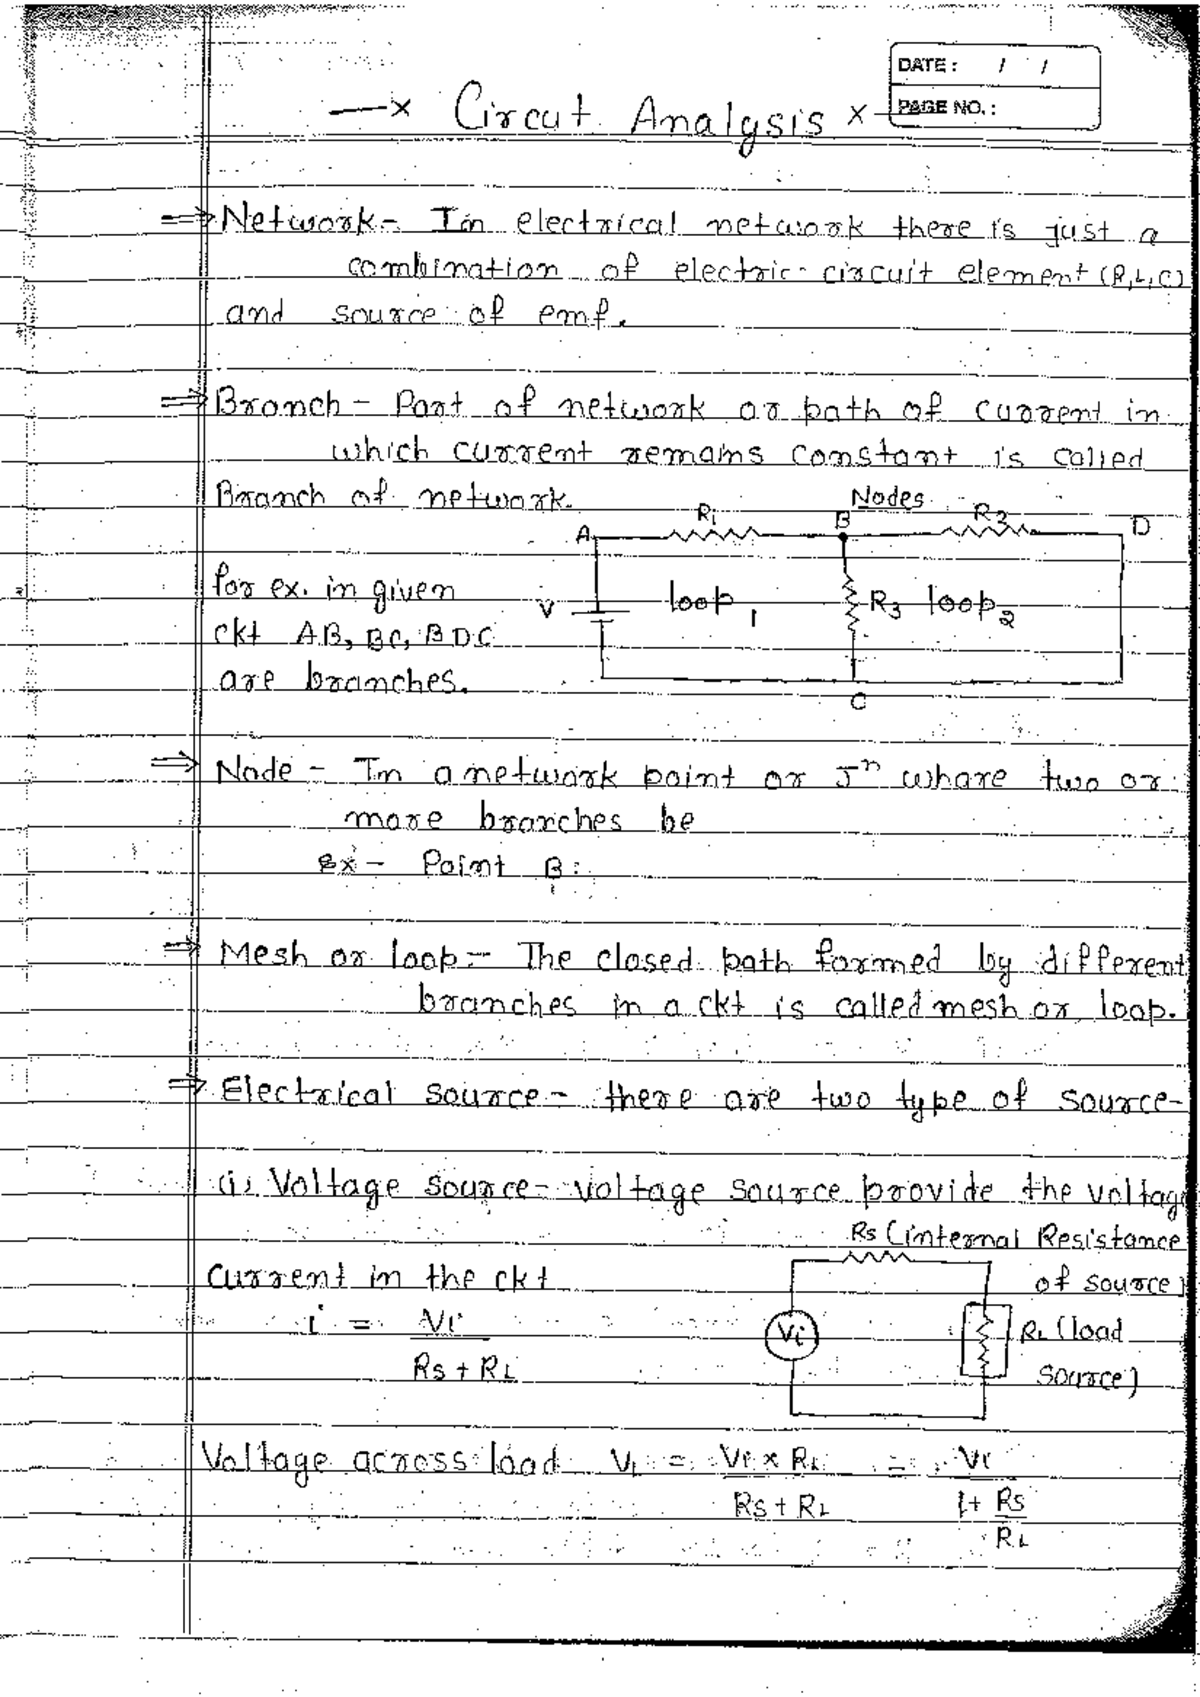 DATE : / /
PAGE NO. :
—x Circut Analysis x—
⇒ Network - In electrical network there is just a
combination of electric circuit element (R,L,C)
and source of emf.
⇒ Branch - Part of network or path of current in
which current remains constant is called
Branch of network.
Nodes
R1 B R2
A D
for ex. in given
V loop 1 R3 loop2
ckt AB, BC, BDC
are branches.
C
⇒ Node - In a network point or Jn whare two or
more branches be
ex - Point B.
⇒ Mesh or loop - The closed path formed by different
branches in a ckt is called mesh or loop.
⇒ Electrical source - there are two type of source -
(i) Voltage source - voltage source provide the voltag
Rs (internal Resistance
Current in the ckt of source)
i = Vi / Rs + RL
Vi RL (load
source)
Voltage across load VL = Vi x RL / Rs + RL = Vi / 1+ Rs/RL